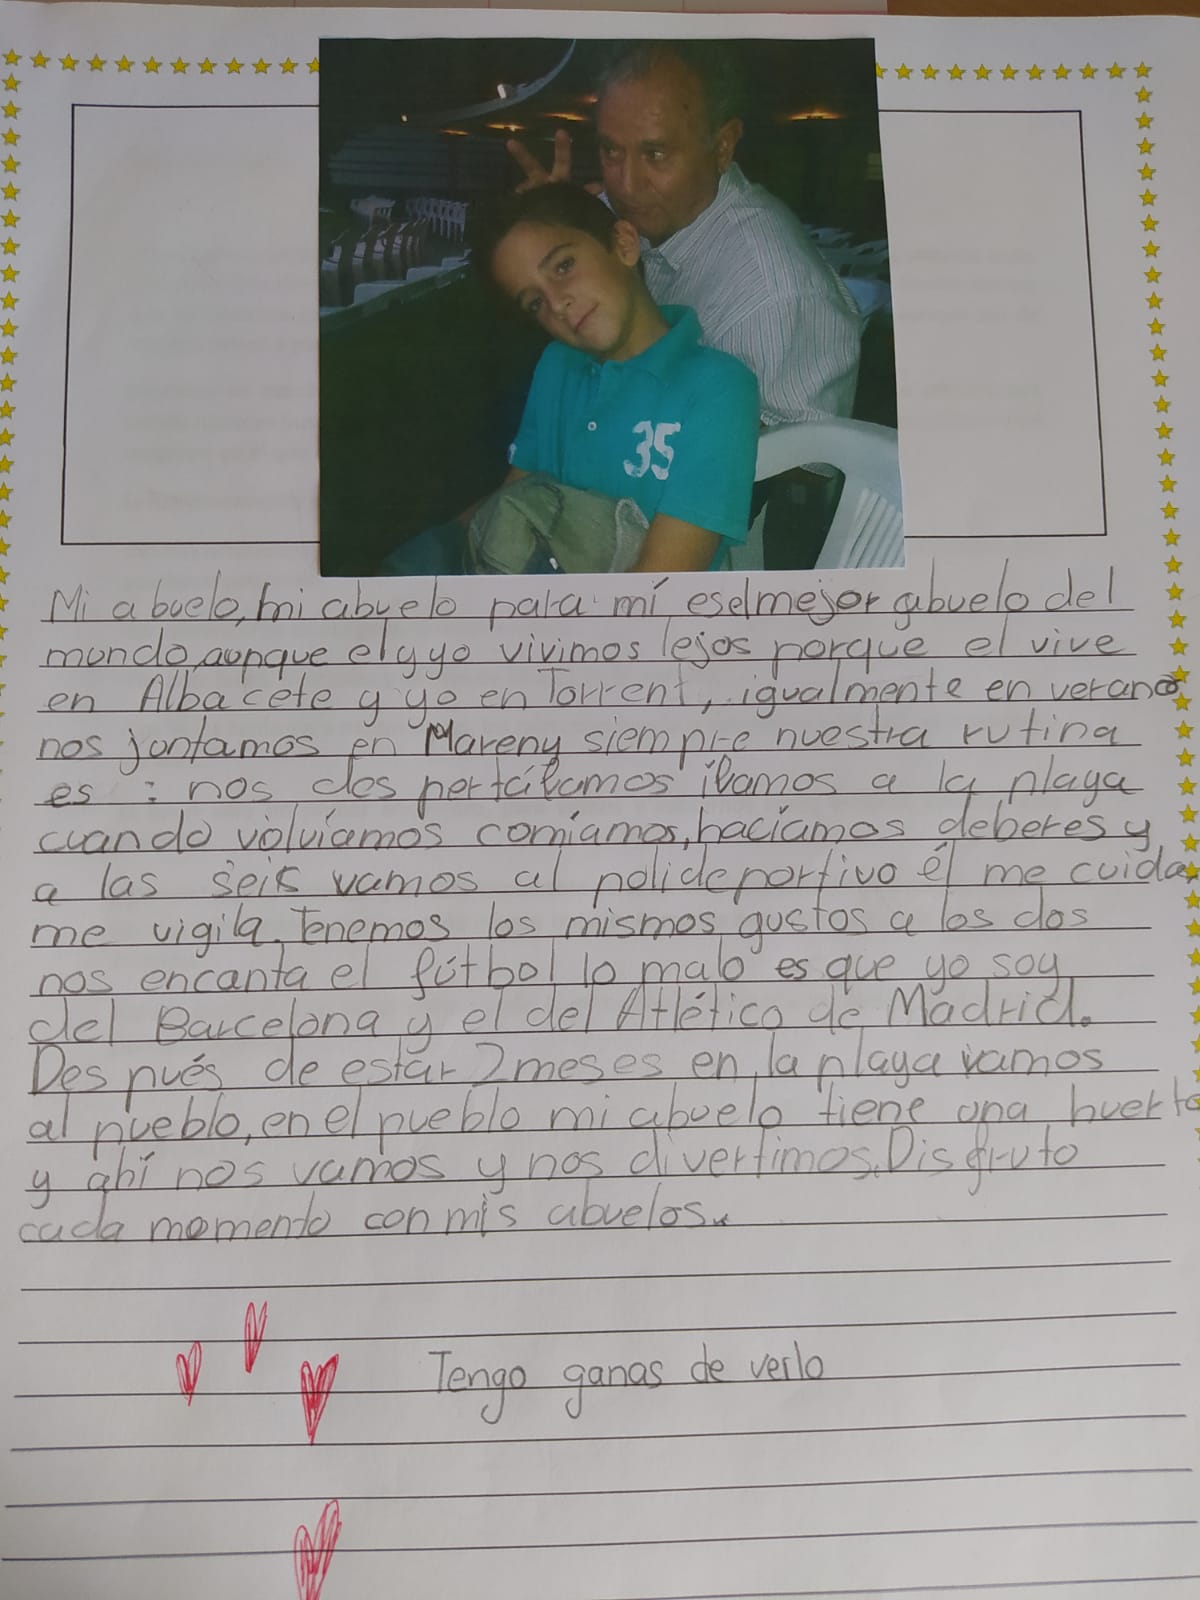 35
Mi abuelo, mi abuelo para mí es el mejor abuelo del
mundo, aunque el y yo vivimos lejos porque el vive
en Albacete y yo en Torrent, igualmente en verano
nos juntamos en Mareny siempre nuestra rutina
es : nos despertábamos íbamos a la playa
cuando volvíamos comíamos, hacíamos deberes y
a las seis vamos al polideportivo él me cuida,
me vigila. Tenemos los mismos gustos a los dos
nos encanta el fútbol lo malo es que yo soy
del Barcelona y el del Atlético de Madrid.
Después de estar 2 meses en la playa vamos
al pueblo, en el pueblo mi abuelo tiene una huerta
y ahí nos vamos y nos divertimos. Disfruto
cada momento con mis abuelos.
Tengo ganas de verlo